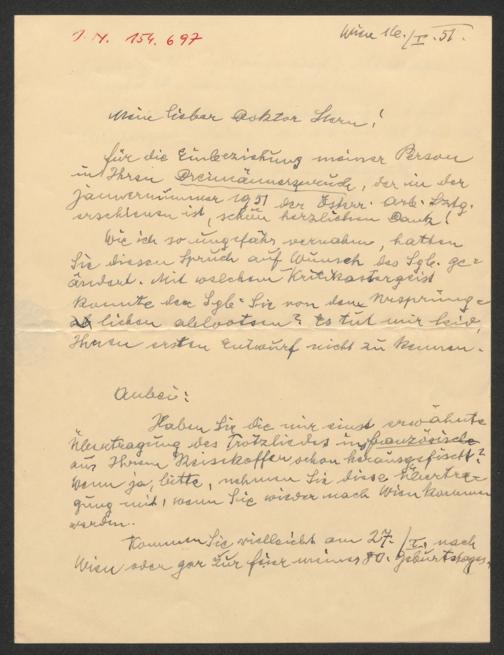 J. N. 154.697
Wien 16./I. 51.
Mein lieber Doktor Stern!
Für die Einbeziehung meiner Person
in Ihren Dreimännerspruch, der in der
Jännernummer 1951 der Österr. Arb. Sztg.
erschienen ist, schön herzlichen Dank!
Wie ich so ungefähr vernahm, hatten
Sie diesen Spruch auf Wunsch des Sgb. ge-
ändert. Mit welchem Kritikastergeist
konnte der Sgb. Sie von dem Ursprüng-
lichen ablootsen? Es tut mir leid,
Ihren ersten Entwurf nicht zu kennen.
Anbei:
Haben Sie die mir einst erwähnte
Übertragung des Trotzliedes ins französische
aus Ihrem Reisekoffer schon herausgefischt?
Wenn ja, bitte, nehmen Sie diese Übertra-
gung mit, wenn Sie wieder nach Wien kommen
werden.
Kommen Sie vielleicht am 27./I. nach
Wien oder gar zur Feier meines 80. Geburtstages,